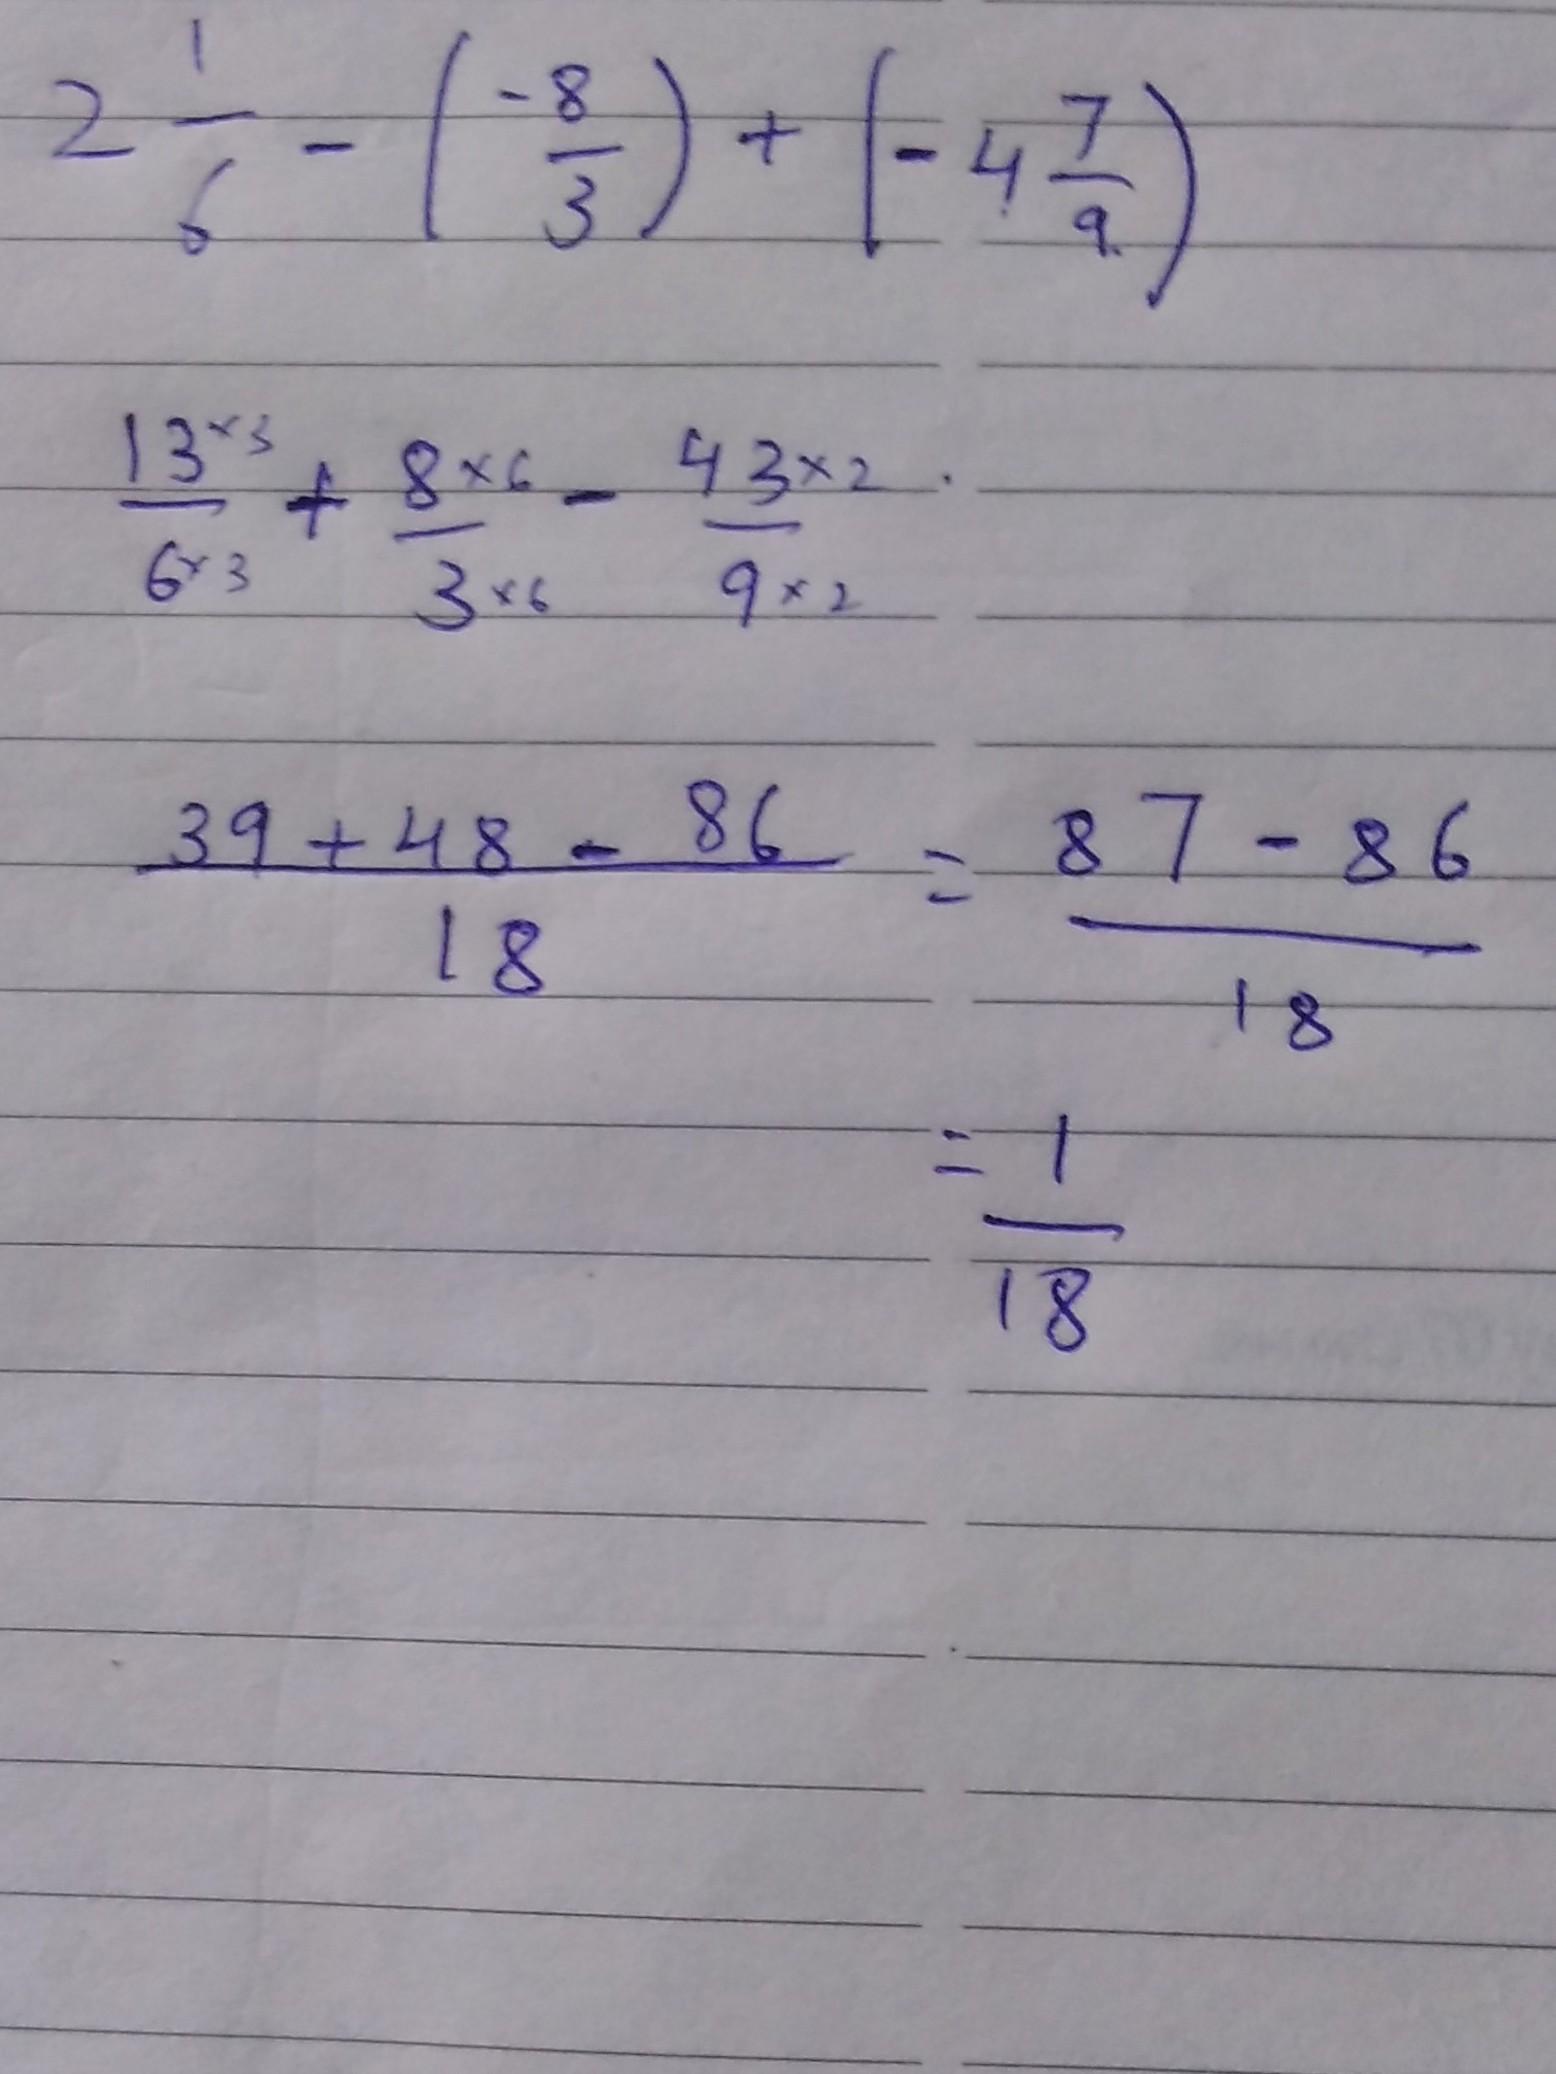 2 1/6 - (-8/3) + (-4 7/9)
13×3/6×3 + 8×6/3×6 - 43×2/9×2
39+48-86/18 = 87-86/18
= 1/18